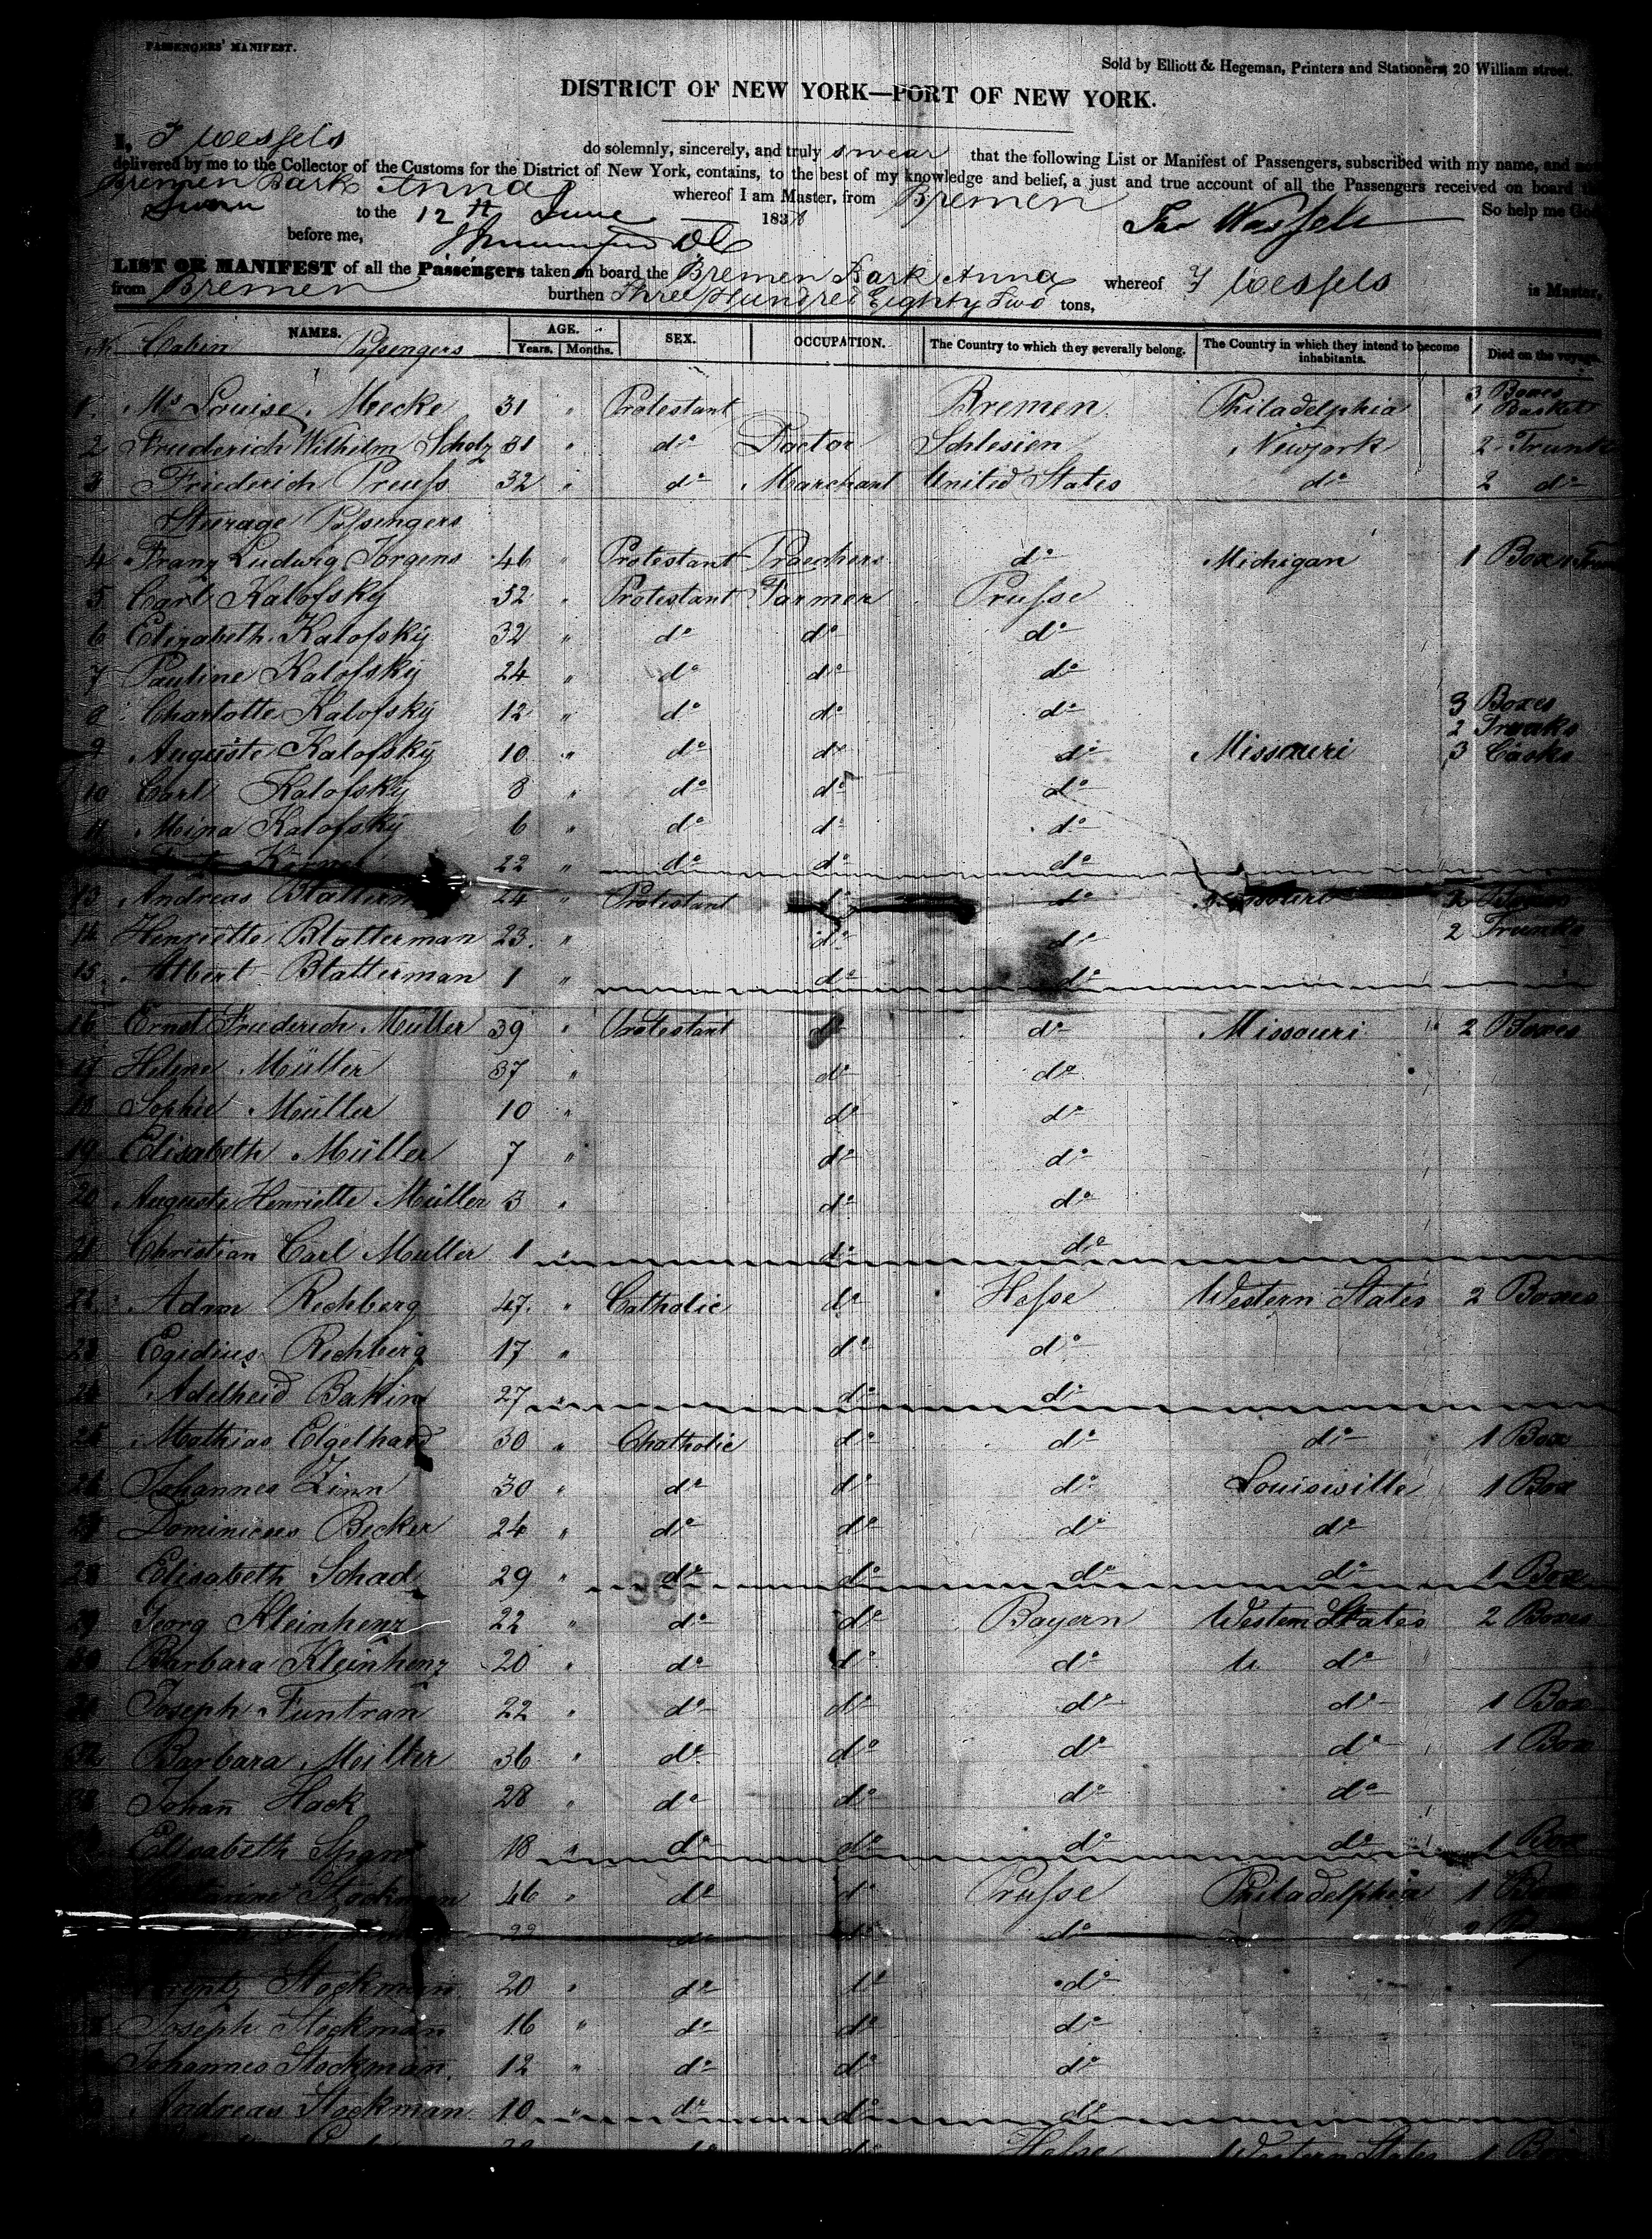 PASSENGERS' MANIFEST.
Sold by Elliott & Hegeman, Printers and Stationers, 20 William street.
DISTRICT OF NEW YORK—PORT OF NEW YORK.
I, J Wessels do solemnly, sincerely, and truly swear that the following List or Manifest of Passengers, subscribed with my name, and
delivered by me to the Collector of the Customs for the District of New York, contains, to the best of my knowledge and belief, a just and true account of all the Passengers received on board
Bremen Bark Anna whereof I am Master, from Bremen So help me God
Sworn to the 12th June 1838
before me,
LIST OR MANIFEST of all the Passengers taken on board the Bremen Bark Anna whereof J Wessels is Master,
from Bremen burthen Three Hundred Eighty Two tons,
NAMES. AGE. SEX. OCCUPATION. The Country to which they severally belong. The Country in which they intend to become inhabitants. Died on the voyage.
Years. Months.
Cabin Passengers
1 Ms Louise Mecke 31 " Protestant Bremen Philadelphia 3 Boxes 1 Basket
2 Friederich Wilhelm Scholz 31 " do Doctor Schlesien Newyork 2 Trunks
3 Friederich Preuss 32 " do Marchant United States do 2 do
Sturage Passengers
4 Franz Ludwig Jorgens 46 " Protestant Praechers do Michigan 1 Box
5 Carl Kalofsky 52 " Protestant Farmer Prusse
6 Elizabeth Kalofsky 32 " do do do
7 Pauline Kalofsky 24 " do do do
8 Charlotte Kalofsky 12 " do do do 3 Boxes
2 Trunks
9 Auguste Kalofsky 10 " do do do Missouri 3 Casks
10 Carl Kalofsky 8 " do do do
11 Mina Kalofsky 6 " do do do
22 " do do do
13 Andreas 24 " Protestant do do
14 Henriette Blatterman 23 " do do 2 Trunks
15 Albert Blatterman 1 " do do
16 Ernst Friederich Müller 39 " Protestant do do Missouri 2 Boxes
17 Helene Müller 37 " do do
18 Sophie Müller 10 " do do
19 Elisabeth Müller 7 " do do
20 Auguste Henriette Müller 3 " do do
21 Christian Carl Muller 1 " do do
22 Adam Rechberg 47 " Catholic do Hesse Western States 2 Boxes
23 Egidius Rechberg 17 " do do
24 Adelheid 27 " do do
25 Mathias Elgelhard 30 " Chatholic do do do 1 Box
26 Johannes Zinn 30 " do do do Louisville 1 Box
27 Dominicus Becker 24 " do do do do
28 Elisabeth Schad 29 " do do do do 1 Box
29 Georg Kleinhenz 22 " do do Bayern Western States 2 Boxes
30 Barbara Kleinhenz 20 " do do do do
31 Joseph Funtran 22 " do do do do 1 Box
32 Barbara Meiller 36 " do do do do 1 Box
33 Johañ Hack 28 " do do do do
Elisabeth 18 " do do do do 1 Box
Stockman 46 " do do Prusse Philadelphia 1 Box
do do do
Stockman 20 " do do do
Joseph Stockman 16 " do do do
Johannes Stockman 12 " do do do
Andreas Stockman 10 " do do do
Hesse Western States 1 Box